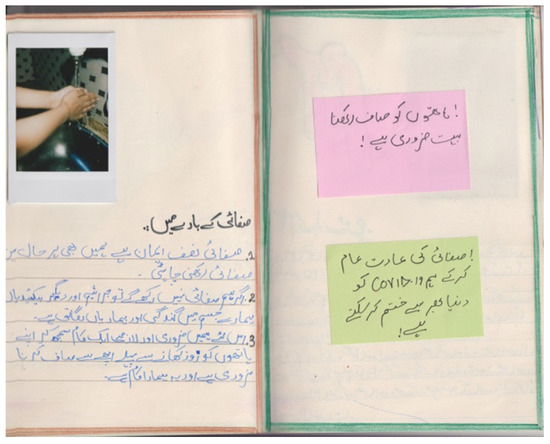 صفائی کے بارے میں:.
1. صفائی نصف ایمان ہے ہمیں بھی ہر حال میں
صفائی رکھنی چاہئیے۔
2. اگر ہم صفائی نہیں رکھے گے تو جراثیم اور دیگر
ہمارے جسم میں گندگی اور بیماریاں لگاتی ہے۔
3. اس لئے ہمیں ضروری اور لازمی ایک کام سمجھ کر اپنے
ہاتھوں کو روز کھانے سے پہلے اچھے سے صاف کرنا
ضروری ہے اور یہ ہمارا کام ہے۔
! ہاتھوں کو صاف رکھنا
بہت ضروری ہے !
! صفائی کی عادت عام
کرکے ہم COVID-19 کو
دنیا بھر سے ختم کر سکتے
ہے !